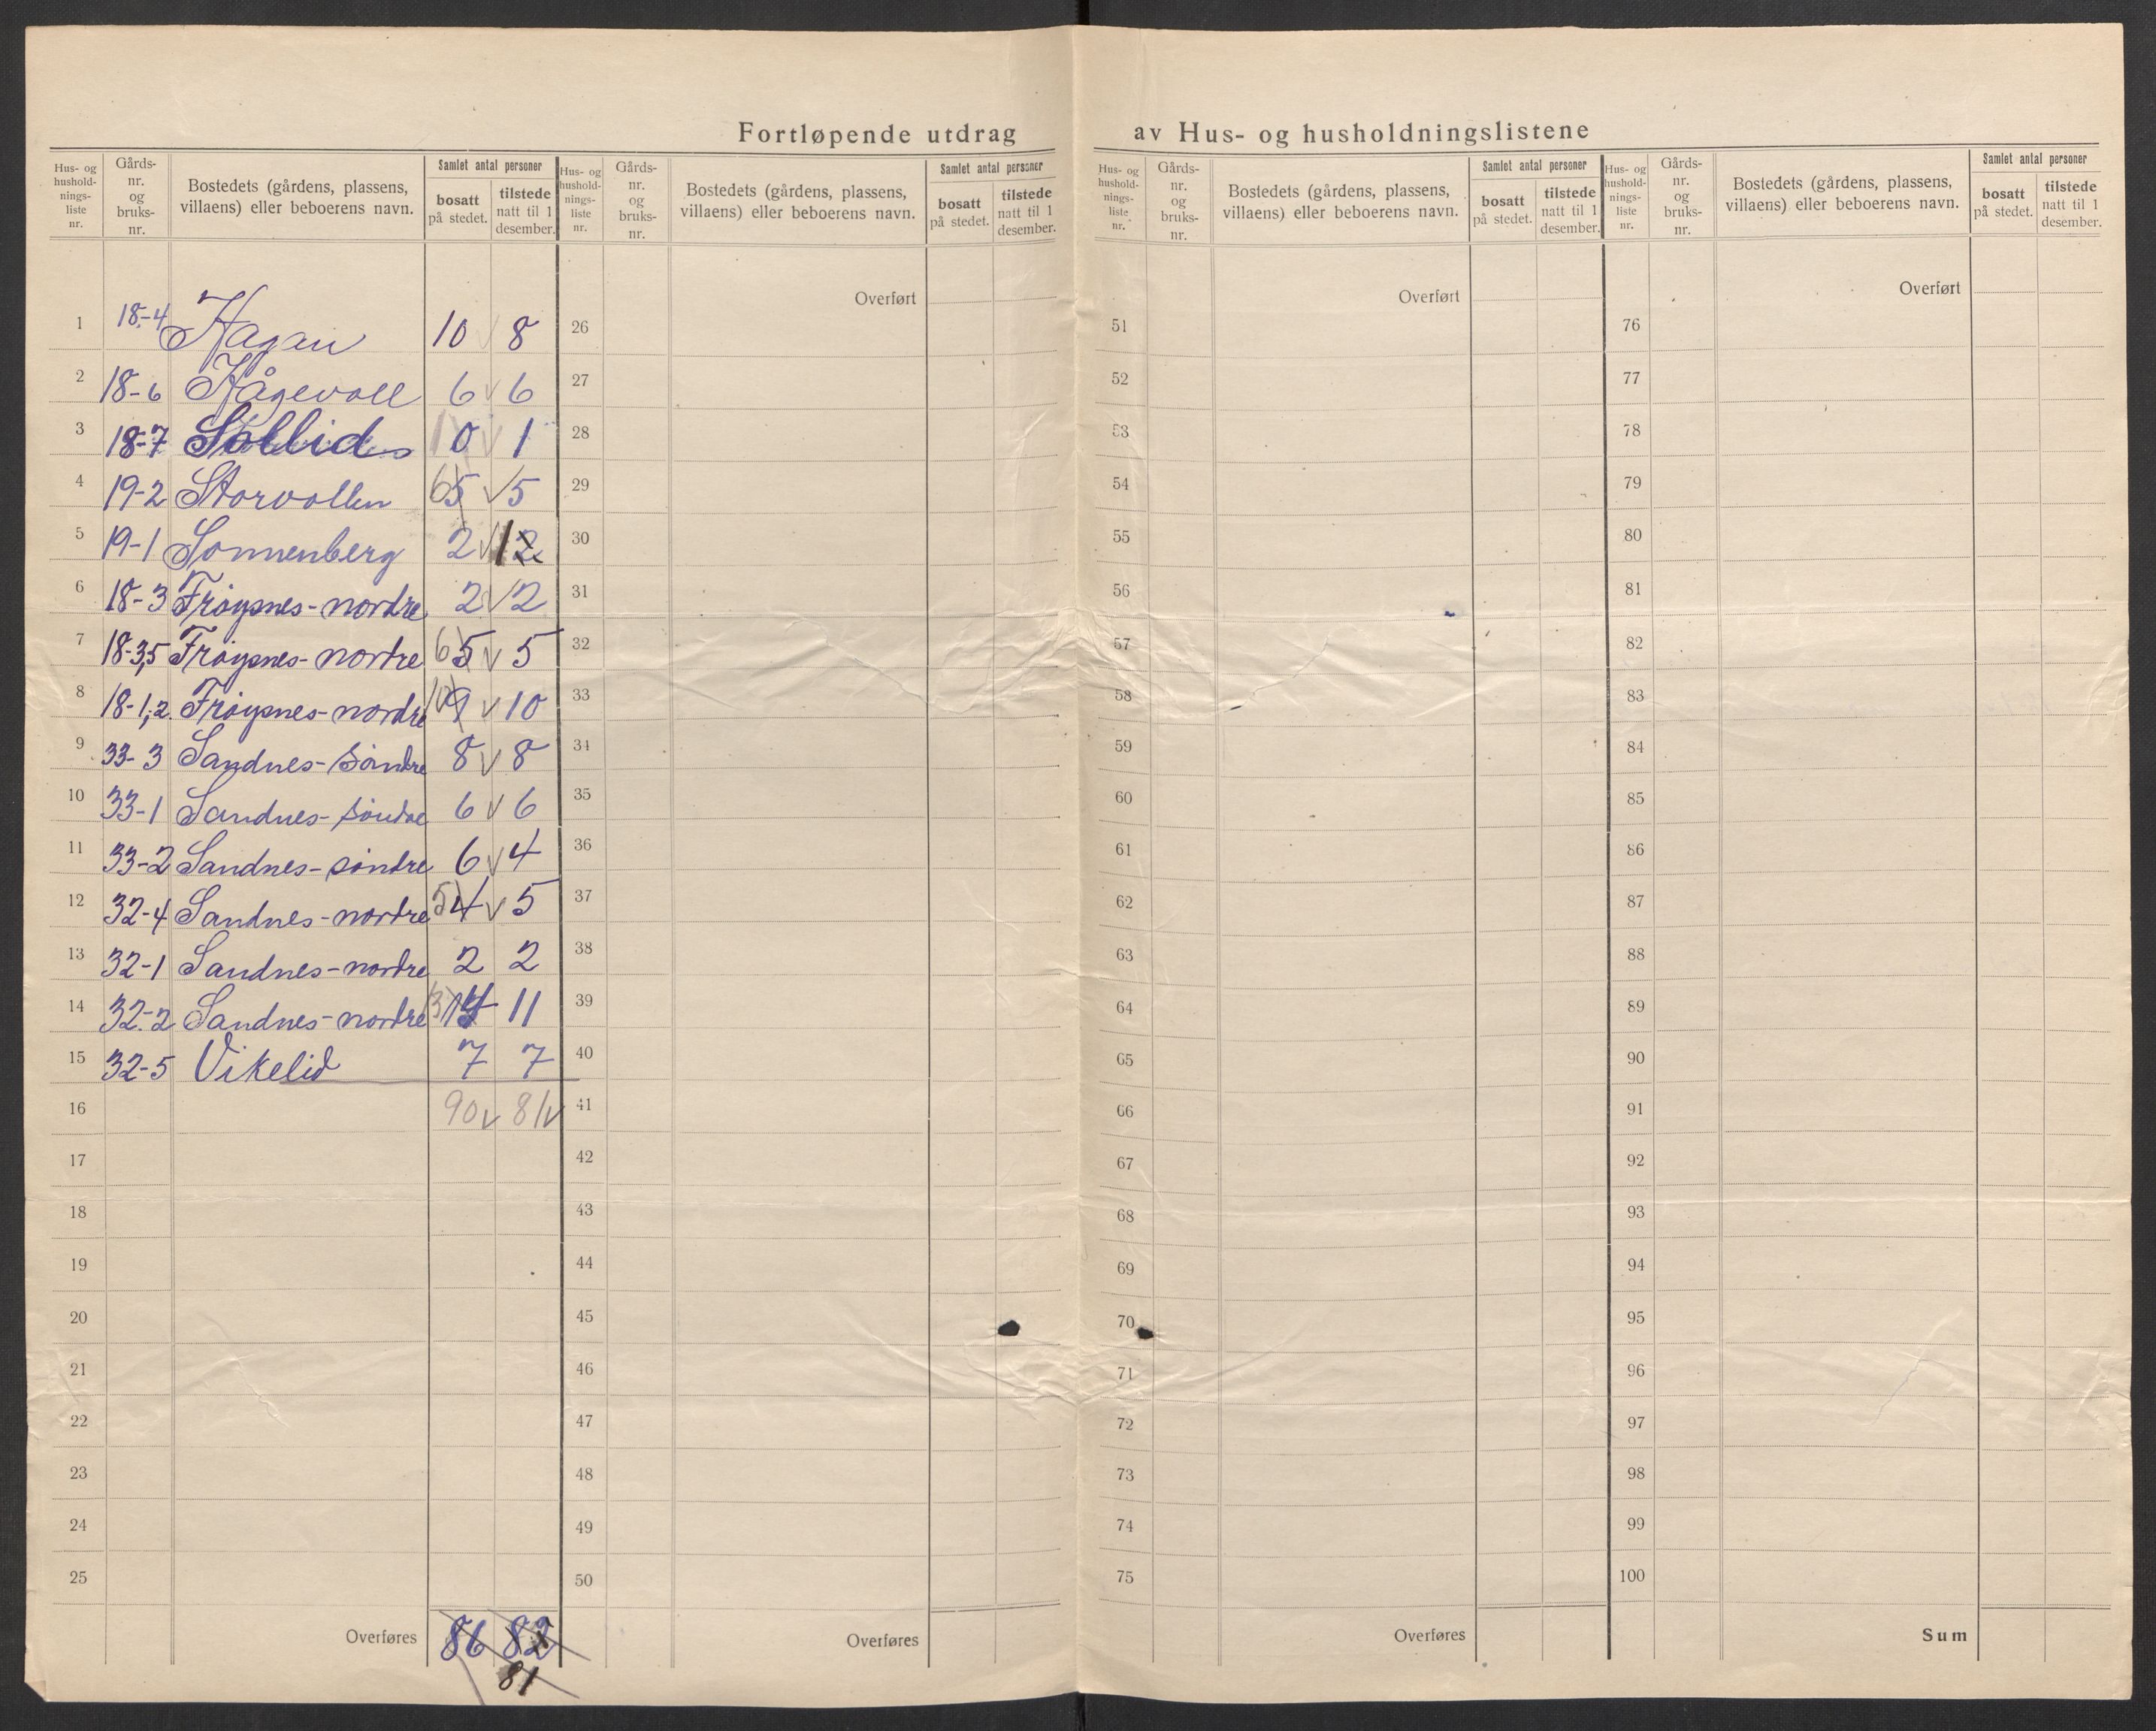 Fortløpende utdrag av Hus- og husholdningslistene
Hus- og hushold-nings-liste nr. | Gårds-nr. og bruks-nr. | Bostedets (gårdens, plassens, villaens) eller beboerens navn. | Samlet antal personer | bosatt på stedet. | tilstede natt til 1 desember.
Hus- og hushold-nings-liste nr. | Gårds-nr. og bruks-nr. | Bostedets (gårdens, plassens, villaens) eller beboerens navn. | Samlet antal personer | bosatt på stedet. | tilstede natt til 1 desember.
Hus- og hushold-nings-liste nr. | Gårds-nr. og bruks-nr. | Bostedets (gårdens, plassens, villaens) eller beboerens navn. | Samlet antal personer | bosatt på stedet. | tilstede natt til 1 desember.
Hus- og hushold-nings-liste nr. | Gårds-nr. og bruks-nr. | Bostedets (gårdens, plassens, villaens) eller beboerens navn. | Samlet antal personer | bosatt på stedet. | tilstede natt til 1 desember.
Overført Overført Overført
1 18-4 Hagan 10 8 26 51 76
2 18-6 Hågevoll 6 √ 6 27 52 77
3 18-7 Sollid 0 √ 1 28 53 78
4 19-2 Storvollen 6 5 √ 5 29 54 79
5 19-1 Sonnenberg 2 √ 1 2 30 55 80
6 18-3 Frøysnes-nordre 2 √ 2 31 56 81
7 18-3,5 Frøysnes-nordre 6 5 √ 5 32 57 82
8 18-1,2. Frøysnes-nordre 10 9 √ 10 33 58 83
9 33-3 Sandnes-søndre 8 √ 8 34 59 84
10 33-1 Sandnes-søndre 6 √ 6 35 60 85
11 33-2 Sandnes-søndre 6 √ 4 36 61 86
12 32-4 Sandnes-nordre 5 4 √ 5 37 62 87
13 32-1 Sandnes-nordre 2 2 38 63 88
14 32-2 Sandnes-nordre 11 39 64 89
15 32-5 Vikelid 7 7 40 65 90
16 90 √ 81 √ 41 66 91
17 42 67 92
18 43 68 93
19 44 69 94
20 45 70 95
21 46 71 96
22 47 72 97
23 48 73 98
24 49 74 99
25 50 75 100
Overføres 86 82 Overføres Overføres Sum
81